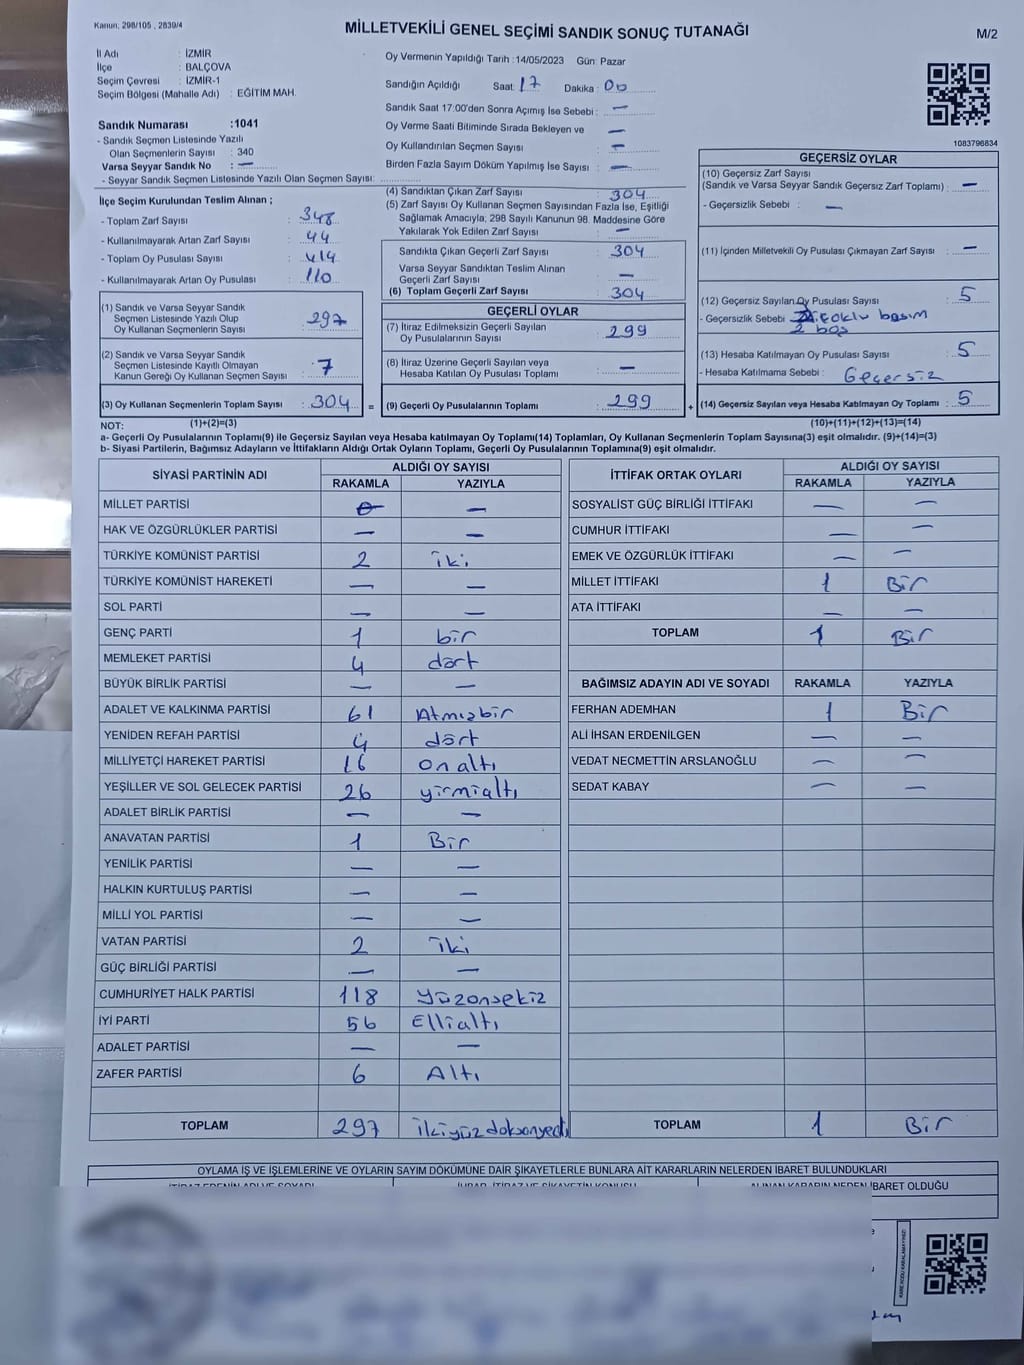 Kanun; 298/105 , 2839/4
MİLLETVEKİLİ GENEL SEÇİMİ SANDIK SONUÇ TUTANAĞI
M/2
İl Adı : İZMİR
İlçe : BALÇOVA
Seçim Çevresi : İZMİR-1
Seçim Bölgesi (Mahalle Adı) : EĞİTİM MAH.
Oy Vermenin Yapıldığı Tarih :14/05/2023 Gün: Pazar
Sandığın Açıldığı Saat: 17 Dakika : 00
Sandık Saat 17:00'den Sonra Açımış İse Sebebi : —
Oy Verme Saati Bitiminde Sırada Bekleyen ve —
Oy Kullandırılan Seçmen Sayısı : —
Birden Fazla Sayım Döküm Yapılmış İse Sayısı : —
Sandık Numarası :1041
- Sandık Seçmen Listesinde Yazılı
Olan Seçmenlerin Sayısı : 340
Varsa Seyyar Sandık No : —
- Seyyar Sandık Seçmen Listesinde Yazılı Olan Seçmen Sayısı:
1083796834
İlçe Seçim Kurulundan Teslim Alınan ;
- Toplam Zarf Sayısı : 348
- Kullanılmayarak Artan Zarf Sayısı : 44
- Toplam Oy Pusulası Sayısı : 414
- Kullanılmayarak Artan Oy Pusulası : 110
(1) Sandık ve Varsa Seyyar Sandık
Seçmen Listesinde Yazılı Olup
Oy Kullanan Seçmenlerin Sayısı : 297
(2) Sandık ve Varsa Seyyar Sandık
Seçmen Listesinde Kayıtlı Olmayan
Kanun Gereği Oy Kullanan Seçmen Sayısı : 7
(3) Oy Kullanan Seçmenlerin Toplam Sayısı : 304 =
(1)+(2)=(3)
(4) Sandıktan Çıkan Zarf Sayısı : 304
(5) Zarf Sayısı Oy Kullanan Seçmen Sayısından Fazla İse, Eşitliği
Sağlamak Amacıyla; 298 Sayılı Kanunun 98. Maddesine Göre
Yakılarak Yok Edilen Zarf Sayısı : —
Sandıkta Çıkan Geçerli Zarf Sayısı : 304
Varsa Seyyar Sandıktan Teslim Alınan
Geçerli Zarf Sayısı : —
(6) Toplam Geçerli Zarf Sayısı : 304
GEÇERLİ OYLAR
(7) İtiraz Edilmeksizin Geçerli Sayılan
Oy Pusulalarının Sayısı : 299
(8) İtiraz Üzerine Geçerli Sayılan veya
Hesaba Katılan Oy Pusulası Toplamı : —
(9) Geçerli Oy Pusulalarının Toplamı : 299 +
GEÇERSİZ OYLAR
(10) Geçersiz Zarf Sayısı
(Sandık ve Varsa Seyyar Sandık Geçersiz Zarf Toplamı) : —
- Geçersizlik Sebebi : —
(11) İçinden Milletvekili Oy Pusulası Çıkmayan Zarf Sayısı : —
(12) Geçersiz Sayılan Oy Pusulası Sayısı : 5
- Geçersizlik Sebebi basım
2 boş
(13) Hesaba Katılmayan Oy Pusulası Sayısı : 5
- Hesaba Katılmama Sebebi : Geçersiz
(14) Geçersiz Sayılan veya Hesaba Katılmayan Oy Toplamı : 5
(10)+(11)+(12)+(13)=(14)
NOT:
a- Geçerli Oy Pusulalarının Toplamı(9) ile Geçersiz Sayılan veya Hesaba katılmayan Oy Toplamı(14) Toplamları, Oy Kullanan Seçmenlerin Toplam Sayısına(3) eşit olmalıdır. (9)+(14)=(3)
b- Siyasi Partilerin, Bağımsız Adayların ve İttifakların Aldığı Ortak Oyların Toplamı, Geçerli Oy Pusulalarının Toplamına(9) eşit olmalıdır.
SİYASİ PARTİNİN ADI ALDIĞI OY SAYISI
RAKAMLA YAZIYLA
MİLLET PARTİSİ 0 —
HAK VE ÖZGÜRLÜKLER PARTİSİ — —
TÜRKİYE KOMÜNİST PARTİSİ 2 iki
TÜRKİYE KOMÜNİST HAREKETİ — —
SOL PARTİ — —
GENÇ PARTİ 1 bir
MEMLEKET PARTİSİ 4 dört
BÜYÜK BİRLİK PARTİSİ — —
ADALET VE KALKINMA PARTİSİ 61 Atmışbir
YENİDEN REFAH PARTİSİ 4 dört
MİLLİYETÇİ HAREKET PARTİSİ 16 onaltı
YEŞİLLER VE SOL GELECEK PARTİSİ 26 yirmialtı
ADALET BİRLİK PARTİSİ — —
ANAVATAN PARTİSİ 1 Bir
YENİLİK PARTİSİ — —
HALKIN KURTULUŞ PARTİSİ — —
MİLLİ YOL PARTİSİ — —
VATAN PARTİSİ 2 İki
GÜÇ BİRLİĞİ PARTİSİ — —
CUMHURİYET HALK PARTİSİ 118 Yüzonsekiz
İYİ PARTİ 56 Ellialtı
ADALET PARTİSİ — —
ZAFER PARTİSİ 6 Altı
TOPLAM 297 İkiyüzdoksanyedi
İTTİFAK ORTAK OYLARI ALDIĞI OY SAYISI
RAKAMLA YAZIYLA
SOSYALİST GÜÇ BİRLİĞİ İTTİFAKI — —
CUMHUR İTTİFAKI — —
EMEK VE ÖZGÜRLÜK İTTİFAKI — —
MİLLET İTTİFAKI 1 Bir
ATA İTTİFAKI — —
TOPLAM 1 Bir
BAĞIMSIZ ADAYIN ADI VE SOYADI RAKAMLA YAZIYLA
FERHAN ADEMHAN 1 Bir
ALİ İHSAN ERDENİLGEN — —
VEDAT NECMETTİN ARSLANOĞLU — —
SEDAT KABAY — —
TOPLAM 1 Bir
OYLAMA İŞ VE İŞLEMLERİNE VE OYLARIN SAYIM DÖKÜMÜNE DAİR ŞİKAYETLERLE BUNLARA AİT KARARLARIN NELERDEN İBARET BULUNDUKLARI
İTİRAZ EDENİN ADI VE SOYADI İHBAR, İTİRAZ VE ŞİKAYETİN KONUSU ALINAN KARARIN NEDEN İBARET OLDUĞU